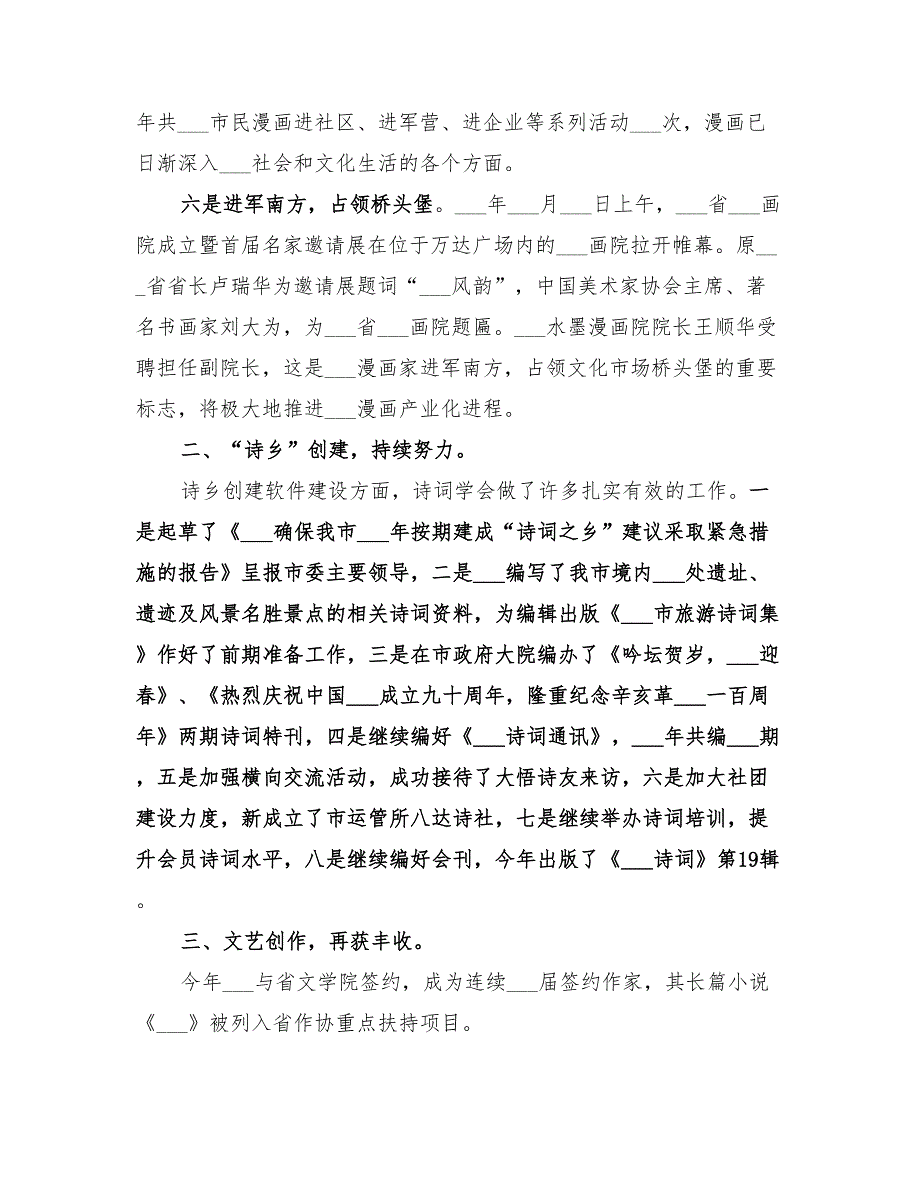 年共___市民漫画进社区、进军营、进企业等系列活动___次，漫画已
日渐深入___社会和文化生活的各个方面。
六是进军南方，占领桥头堡。___年___月___日上午，___省___画
院成立暨首届名家邀请展在位于万达广场内的___画院拉开帷幕。原__
_省省长卢瑞华为邀请展题词“___风韵”，中国美术家协会主席、著
名书画家刘大为，为___省___画院题匾。___水墨漫画院院长王顺华受
聘担任副院长，这是___漫画家进军南方，占领文化市场桥头堡的重要
标志，将极大地推进___漫画产业化进程。
二、“诗乡”创建，持续努力。
诗乡创建软件建设方面，诗词学会做了许多扎实有效的工作。一
是起草了《___确保我市___年按期建成“诗词之乡”建议采取紧急措
施的报告》呈报市委主要领导，二是___编写了我市境内___处遗址、
遗迹及风景名胜景点的相关诗词资料，为编辑出版《___市旅游诗词集
》作好了前期准备工作，三是在市政府大院编办了《吟坛贺岁，___迎
春》、《热烈庆祝中国___成立九十周年，隆重纪念辛亥革___一百周
年》两期诗词特刊，四是继续编好《___诗词通讯》，___年共编___期
，五是加强横向交流活动，成功接待了大悟诗友来访，六是加大社团
建设力度，新成立了市运管所八达诗社，七是继续举办诗词培训，提
升会员诗词水平，八是继续编好会刊，今年出版了《___诗词》第19辑
。
三、文艺创作，再获丰收。
今年___与省文学院签约，成为连续___届签约作家，其长篇小说
《___》被列入省作协重点扶持项目。